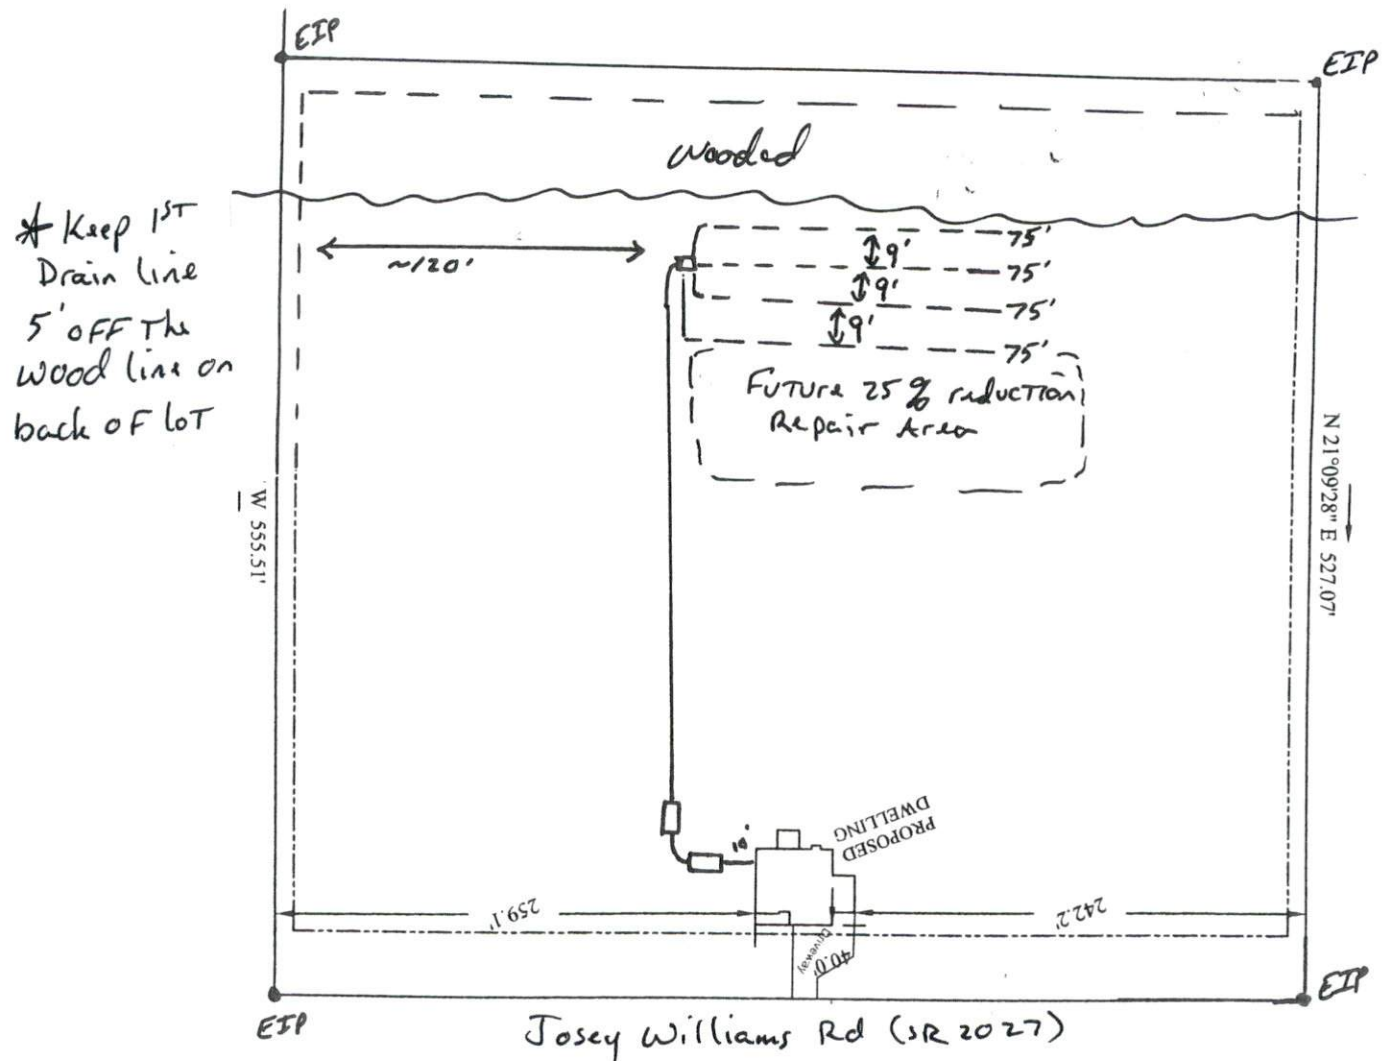 EIP
EIP
Wooded
* Keep 1ST
Drain line
5' OFF The
wood line on
back of lot
~120'
75'
9'
75'
9'
75'
9'
75'
Future 25% reduction
Repair Area
W 555.51'
N 21°09'28" E 527.07'
PROPOSED
DWELLING
10'
259.1'
242.2'
Driveway
40.0'
EIP
EIP
Josey Williams Rd (SR 2027)